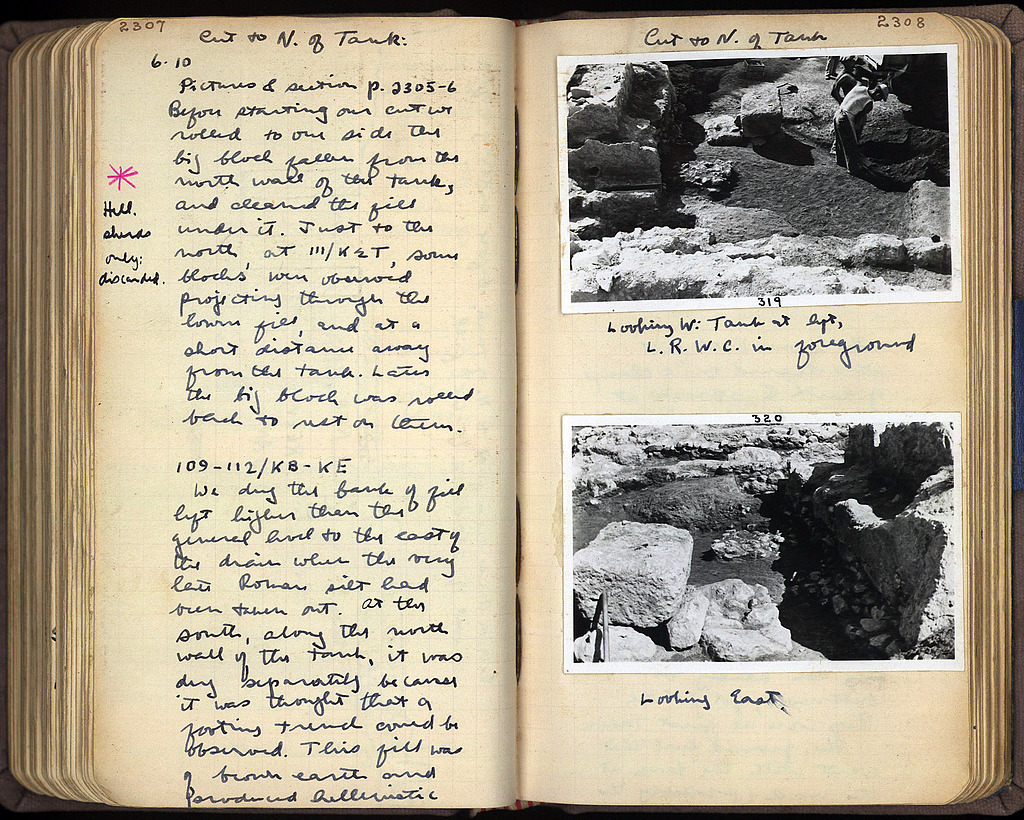 2307
Cut to N. of Tank:
6.10
Pictures & section p. 2305-6
Before starting our cut we
rolled to one side the
big block fallen from the
north wall of the Tank,
and cleaned the fill
under it. Just to the
north, at 111/KET, some
blocks were observed
projecting through the
lower fill, and at a
short distance away
from the tank. Later
the big block was rolled
back to rest on them.
Hell.
sherds
only;
discarded.
109-112/KB-KE
We dug the bank of fill
left higher than the
general level to the east of
the drain when the very
late Roman silt had
been taken out. At the
south, along the north
wall of the tank, it was
dug separately because
it was thought that a
footing trench could be
observed. This fill was
of brown earth and
produced hellenistic
2308
Cut to N. of Tank
319
Looking W: Tank at left,
L. R. W. C. in foreground
320
Looking East.